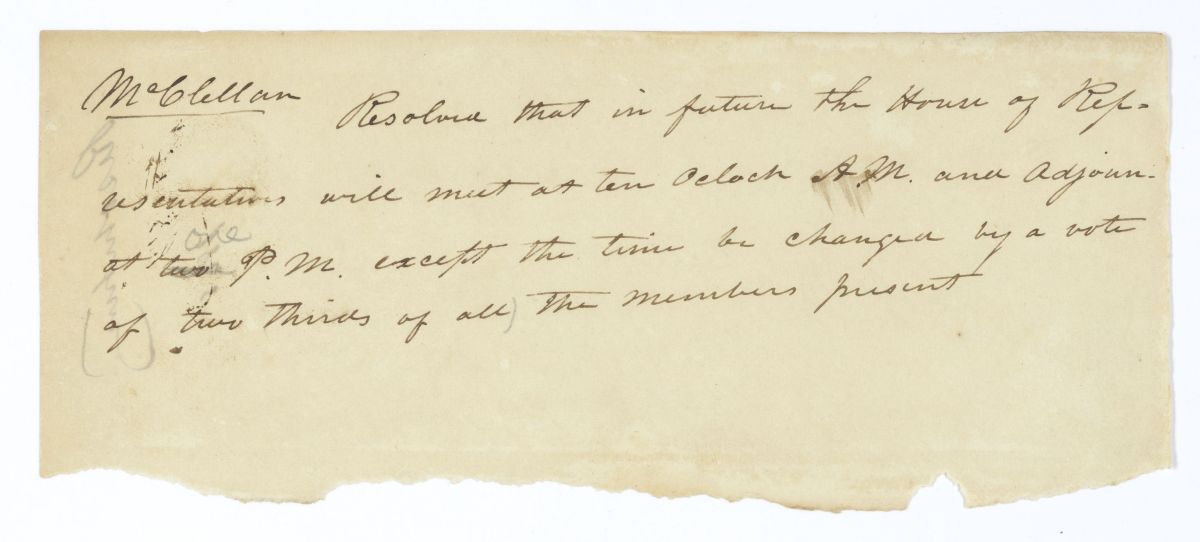 McClellan
Resolved that in future the House of Rep-
resentatives will meet at ten Oclock A.M. and Adjourn-
one
at two P.M. except the time be changed by a vote
of two thirds of all) the members present